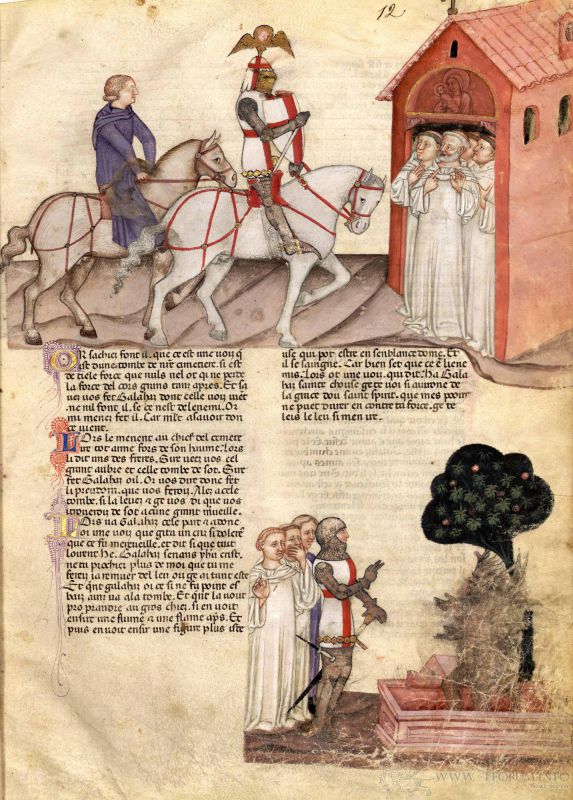 12
Or sachiez font il. que ce est une uoiz q̃
ist dune tombe de nr̃e cimentere. si est
de tiele force que nuls nel ot qui ne perde
la force del cors grant tens apres. Et sa
uez uos fet Galahaz dont celle uoiz uiẽt
ne nil font il. se ce nest del enemi. Or
mi menez fet il. Car
ce uient.
Lors le menent au chief del
tot arme fors de son haume. Lors
li dit uns des freres. Sire ueez uos cel
grant arbre et celle tombe de soz. Sire
fet Galahaz oil. Or uos dirai donc fet
li preudom. que uos feroiz. Alez a cele
tombe. si la leuez et ge uos di que uos
trouueroiz de soz aucune grant merueille.
Lors ua Galahaz cele part et adonc
oi une uoiz que gita un cri si doleret
que ce fu merueille. et dit si que tuit
loirent He. Galahaz serianz ihesu crist.
ne ti prochier plus de moi que tu me
feroiz ia remuer del leu ou ge ai tant este
Et qnt galahaz oi ce si ne fu point es
bahi ainz ua ala tombe. Et qnt la uout
por prandre au gros chief. si en uoit
ensir une flame apres. Et
puis en uoit ensir une figure plus
use qui pot estre en senblance dome. Et
il se saingne. Car bien set que ce est li ene
mis. Lors ot une uoiz qui dit. Ha Gala
haz sainte chouse ge te uoi si auirone de
la grace dou saint spirit. que mes pooir
ne puet durer en contre ta force. ge te
leis le leu si men uet.
WWW.TFORUM.INFO